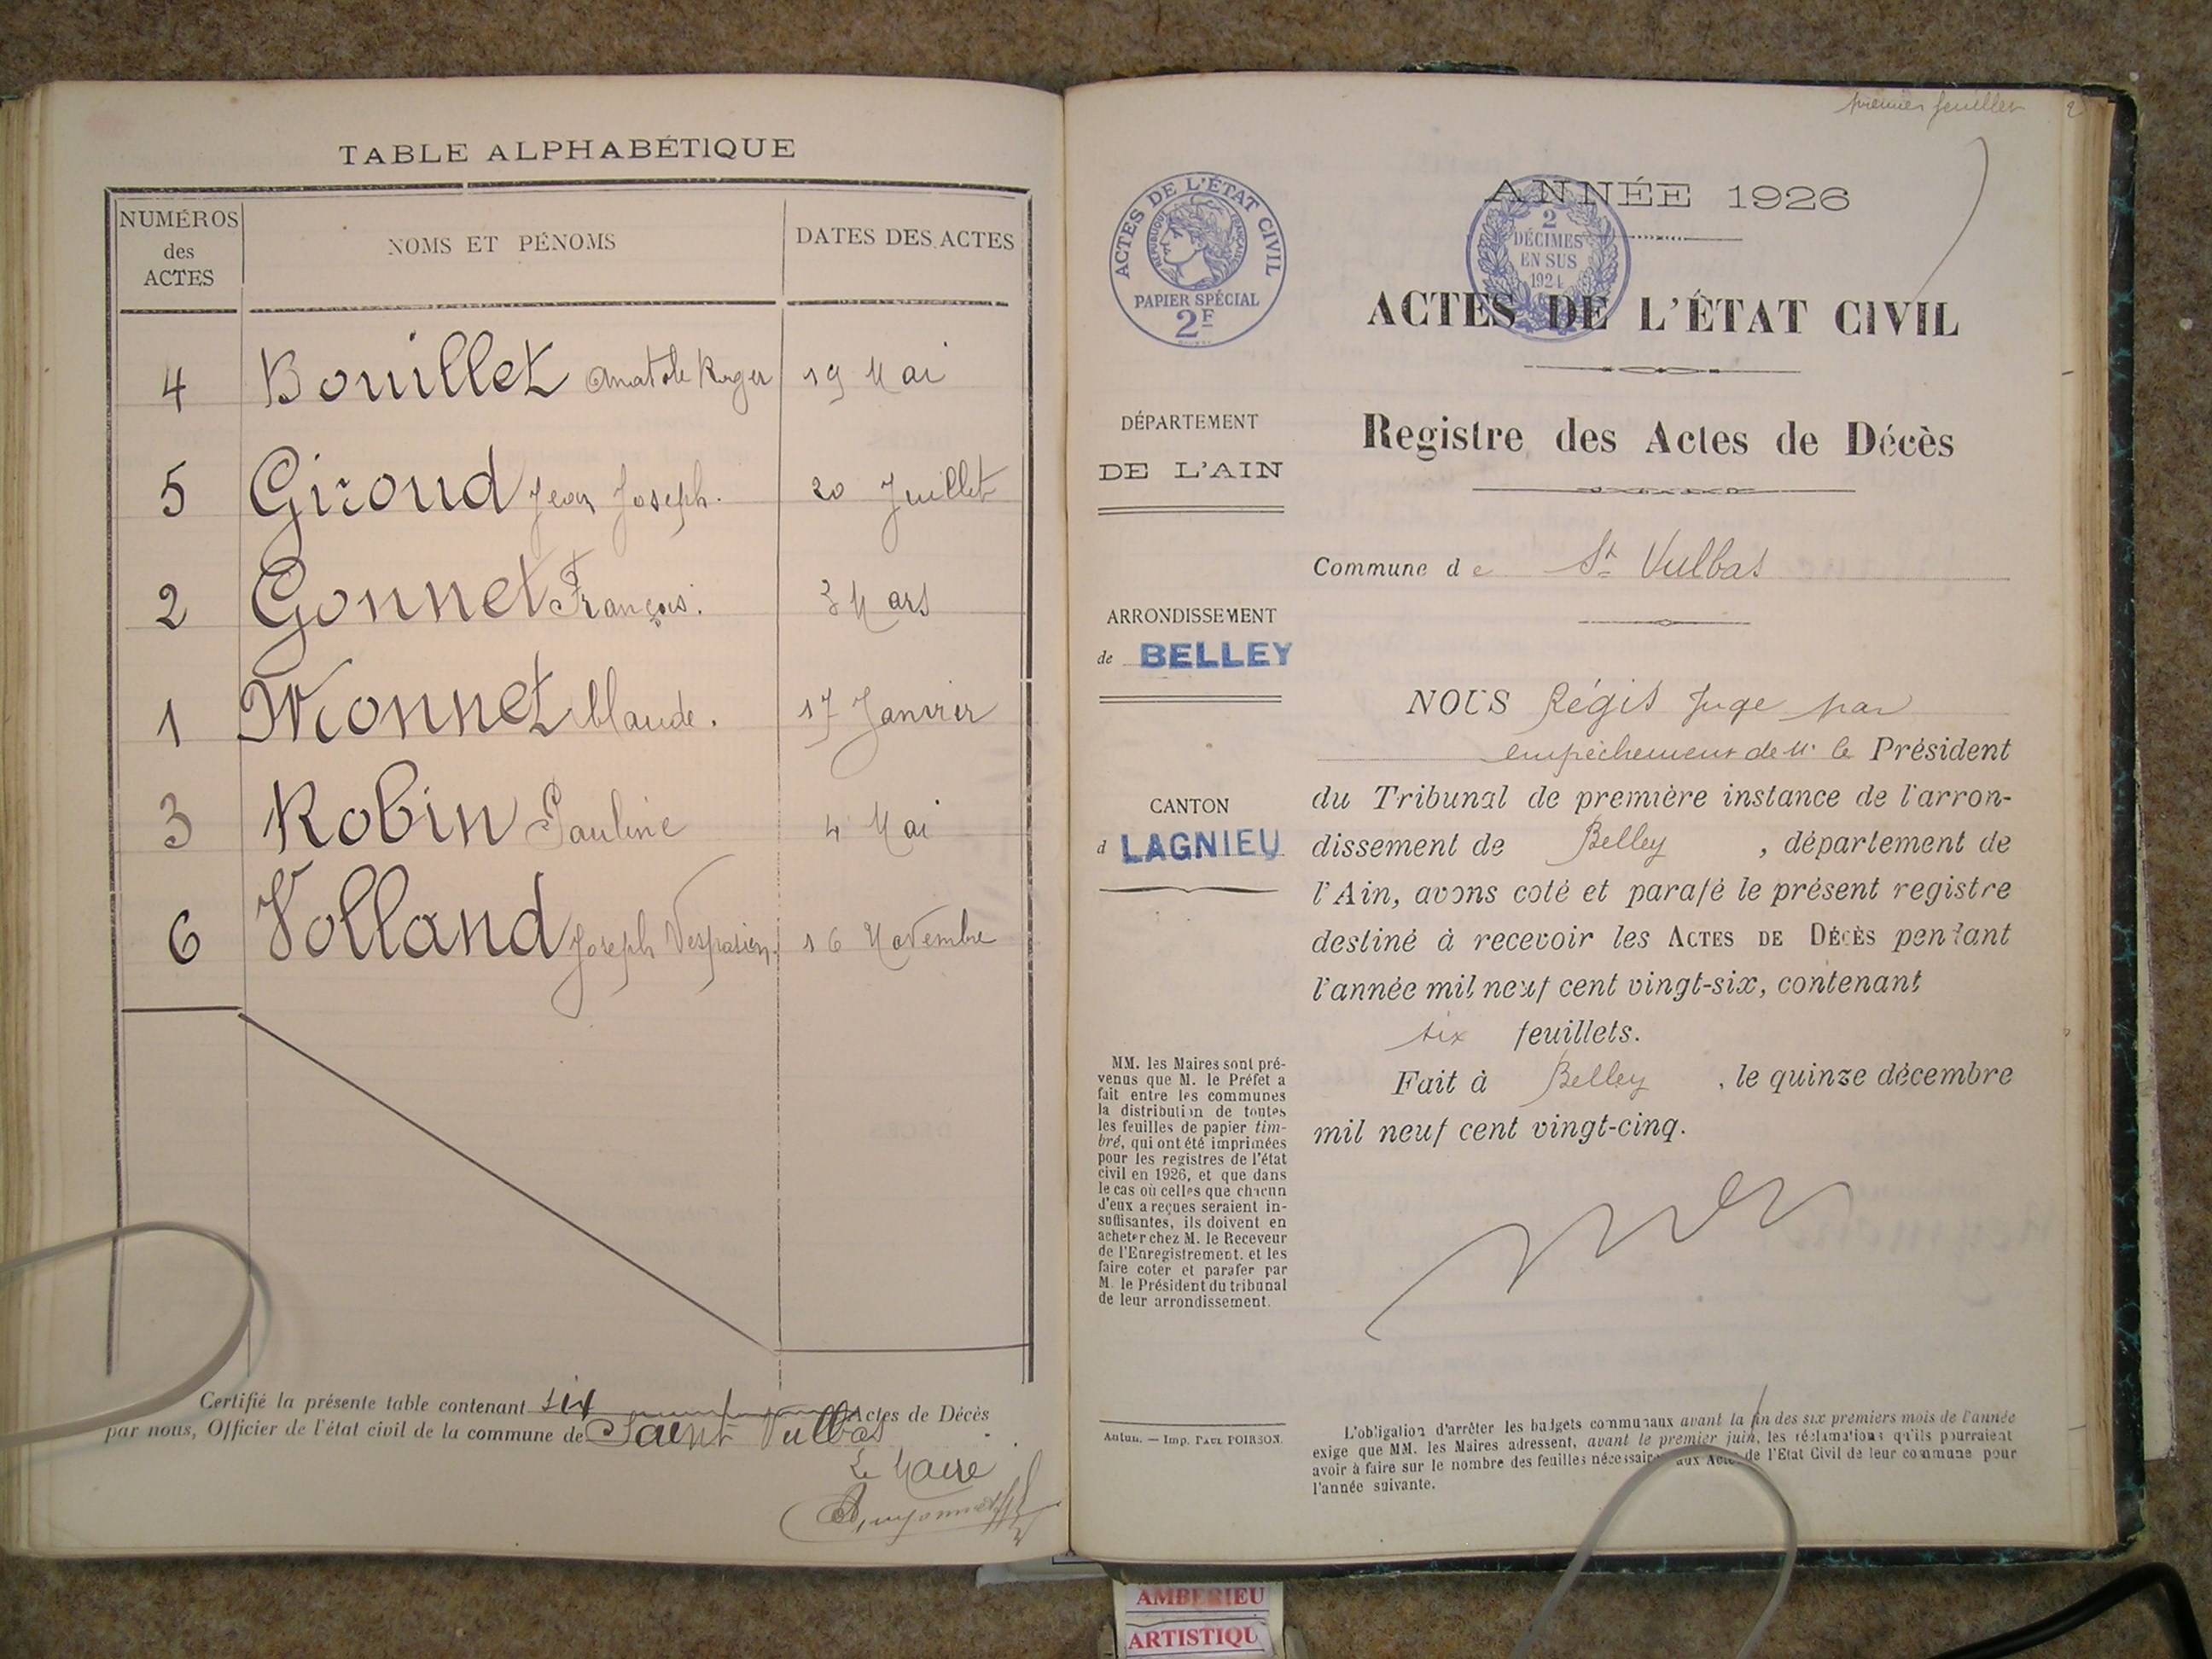 TABLE ALPHABÉTIQUE
NUMÉROS des ACTES
NOMS ET PÉNOMS
DATES DES ACTES
4 Bouillet Anatole Roger 19 Mai
5 Giroud Jean Joseph. 20 Juillet
2 Gonnet François. 3 Mars
1 Monnet Claude. 17 Janvier
3 Robin Pauline 4 Mai
6 Volland Joseph Vespasien. 16 Novembre
Certifié la présente table contenant six Actes de Décès
par nous, Officier de l'état civil de la commune de Saint Vulbas
Le Maire
premier feuillet
2
ACTES DE L'ÉTAT CIVIL
RÉPUBLIQUE FRANÇAISE
PAPIER SPÉCIAL
2F
2
DÉCIMES
EN SUS
1924
ANNÉE 1926
ACTES DE L'ÉTAT CIVIL
Registre des Actes de Décès
DÉPARTEMENT
DE L'AIN
ARRONDISSEMENT
de BELLEY
CANTON
d LAGNIEU
Commune de St Vulbas
NOUS Régis Juge par
empêchement de M. le Président
du Tribunal de première instance de l'arron-
dissement de Belley, département de
l'Ain, avons coté et parafé le présent registre
destiné à recevoir les ACTES DE DÉCÈS pendant
l'année mil neuf cent vingt-six, contenant
six feuillets.
Fait à Belley, le quinze décembre
mil neuf cent vingt-cinq.
MM. les Maires sont pré-
venus que M. le Préfet a
fait entre les communes
la distribution de toutes
les feuilles de papier tim-
bré, qui ont été imprimées
pour les registres de l'état
civil en 1926, et que dans
le cas où celles que chacun
d'eux a reçues seraient in-
suffisantes, ils doivent en
acheter chez M. le Receveur
de l'Enregistrement. et les
faire coter et parafer par
M. le Président du tribunal
de leur arrondissement.
Autun. — Imp. PAUL POIRSON.
L'obligation d'arrêter les budgets communaux avant la fin des six premiers mois de l'année
exige que MM. les Maires adressent, avant le premier juin, les réclamations qu'ils pourraient
avoir à faire sur le nombre des feuilles nécessaires aux Actes de l'Etat Civil de leur commune pour
l'année suivante.
AMBERIEU
ARTISTIQU